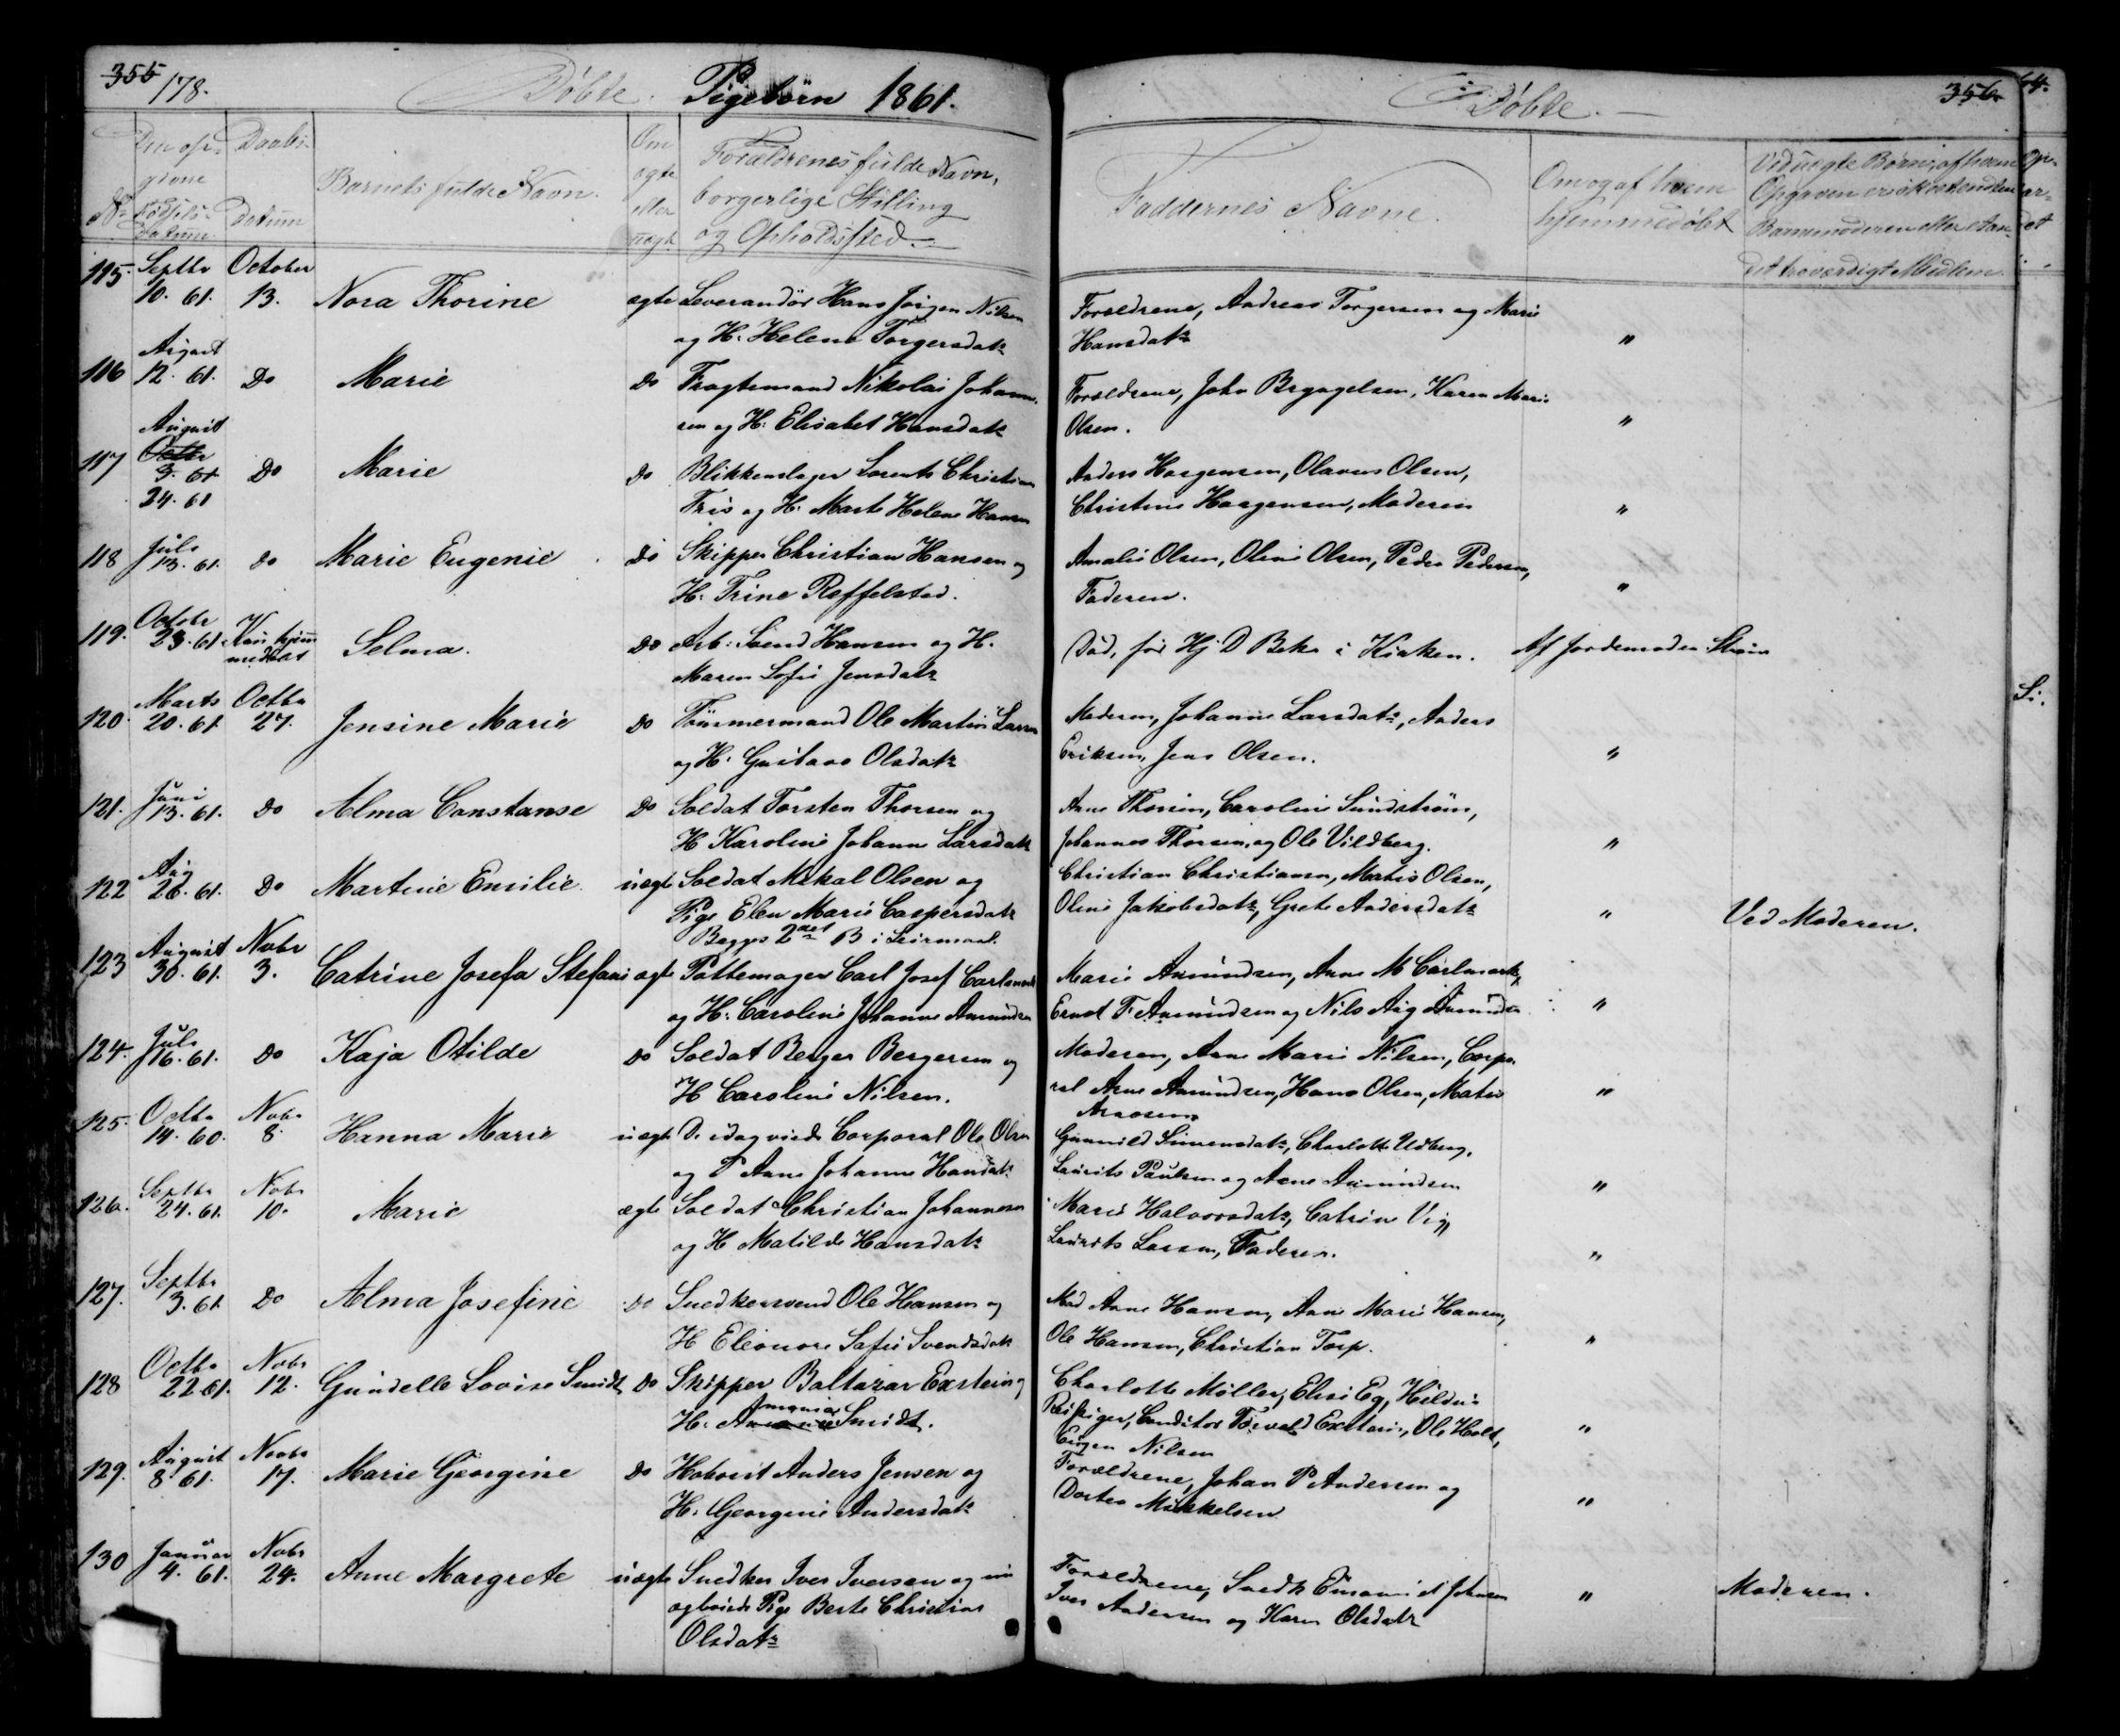 355 178.
Døbte. Pigebørn 1861.
N° Den opgivne Fødsels-Datum. Daabs-Datum Barnets fulde Navn. Om ægte eller uægte Forældrenes fulde Navn, borgerlige Stilling og Opholdssted.
115. Septbr 10. 61. October 13. Nora Thorine ægte Leverandør Hans Jørgen Nilsen
og H. Helene Torgersdatr
116 August 12. 61. Do Marie Do Fragtemand Nikolai Johann-
sen og H. Elisabet Hansdatr
117 August Octbr 3. 61 24. 61 Do Marie Do Blikkenslager Lorents Christian
Friis og H. Marte Helene Hansen
118 Juli 13. 61. do Marie Eugenie do Skipper Christian Hansen og
H. Trine Roffelsted.
119. Octobr 23. 61. Kun hjemmedøbt Selma. Do Arb: Svend Hansen og H.
Maren Sofie Jensdatr
120. Marts 20. 61. Octbr 27. Jensine Marie Do Tømmermand Ole Martin Larsen
og H. Gustava Olsdatr
121. Juni 13. 61. Do Alma Constanse Do Soldat Torsten Thorsen og
H Karoline Johanne Larsdatr
122 Aug 26. 61. Do Martine Emilie uægte Soldat Mikal Olsen og
Pige Elen Marie Caspersdatr
Begges 2det B i Leiermaal.
123 August 30. 61. Nvbr 3. Catrine Josefa Stefani ægte Pottemager Carl Josef Carlmark
og H. Caroline Johanne Amundsen
124. Juli 16. 61. Do Kaja Otilde Do Soldat Berger Bergersen og
H Caroline Nilsen.
125. Octbr 14. 60. Nvbr 8. Hanna Marie uægte D. idag viede Corporal Ole Olsen
og P Anne Johanne Hansdatr
126. Septbr 24. 61. Nvbr 10. Marie ægte Soldat Christian Johannesen
og H Matilde Hansdatr
127. Septbr 3. 61. Do Alma Josefine Do Snedkersvend Ole Hansen og
H Eleonore Sofie Svendsdatr
128 Octbr 22. 61. Nvbr 12. Gundelle Lovise Smidt Do Skipper Baltazar Exstein og
H. Smidt.
129. August 8. 61. Novbr 17. Marie Georgine Do Hoboist Anders Jensen og
H. Georgine Andersdatr
130 Januar 4. 61. Nvbr 24. Anne Margrete uægte Snedker Iver Iversen og nu
ægteviede Pige Berte Christine
Olsdatr
Døbte. 356.
Faddernes Navne. Om og af hvem hjemmedøbt Ved uægte Børn, af hvem Opgaven er skeet enten Barnemoderen eller et andet troværdigt Medlem.
Forældrene, Andreas Torgersen og Marie
Hansdatr "
Forældrene, John Bryngelsen, Karen Marie
Olsen. "
Anders Horgensen, Olavus Olsen,
Christine Horgensen, Moderen "
Amalie Olsen, Oline Olsen, Peder Pedersen,
Faderen. "
Død, før Hj D Bekr i Kirken. Af Jordemoder Strøm
Moderen, Johanne Larsdatr, Anders
Eriksen, Jens Olsen. "
Anne Thorsen, Caroline Sundstrøm,
Johannes Thorsen, og Ole Vildberg. "
Christian Christiansen, Matis Olsen,
Oline Jakobsdatr, Grete Andersdatr " Ved Moderen.
Marie Amundsen, Anne M Carlmark,
Ernst F. Amundsen og Nils Aug Amundsen "
Moderen, Anne Marie Nilsen, Corpo-
ral Arne Amundsen, Hans Olsen, Matis
Araasen "
Gunnild Simensdatr, Charlotte Udberg,
Laurits Paulsen og Arne Amundsen "
Marie Halvorsdatr, Catrine Vig,
Laurits Larsen, Faderen. "
Mad Anne Hansen, Anne Marie Hansen,
Ole Hansen, Christian Torp. "
Charlotte Møller, Elise Eg,
Conditor Torvald Exstein, Ole Holt,
Eugen Nilsen "
Forældrene, Johan P Andersen og
Dortea Mikkelsen "
Forældrene, Snedkr Johnsen
Iver Andersen og Karen Olsdatr " Moderen.